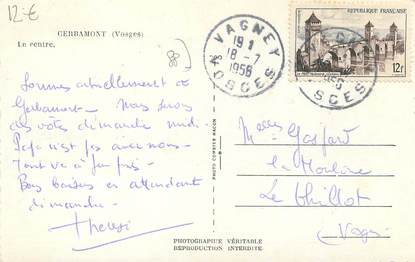 12 €
GERBAMONT (Vosges)
Le centre.
VAGNEY
19 H
18-7
1958
VOSGES
RÉPUBLIQUE FRANÇAISE
12F
Sommes actuellement à
Gerbamont - Nous serons
chez vous dimanche midi
Papi n'est pas avec nous -
Tout va à peu près -
Bons baisers en attendant
dimanche -
Mme Gaspard
Le Thillot
Vosges
PHOTO COMBIER MACON
PHOTOGRAPHIE VÉRITABLE
REPRODUCTION INTERDITE